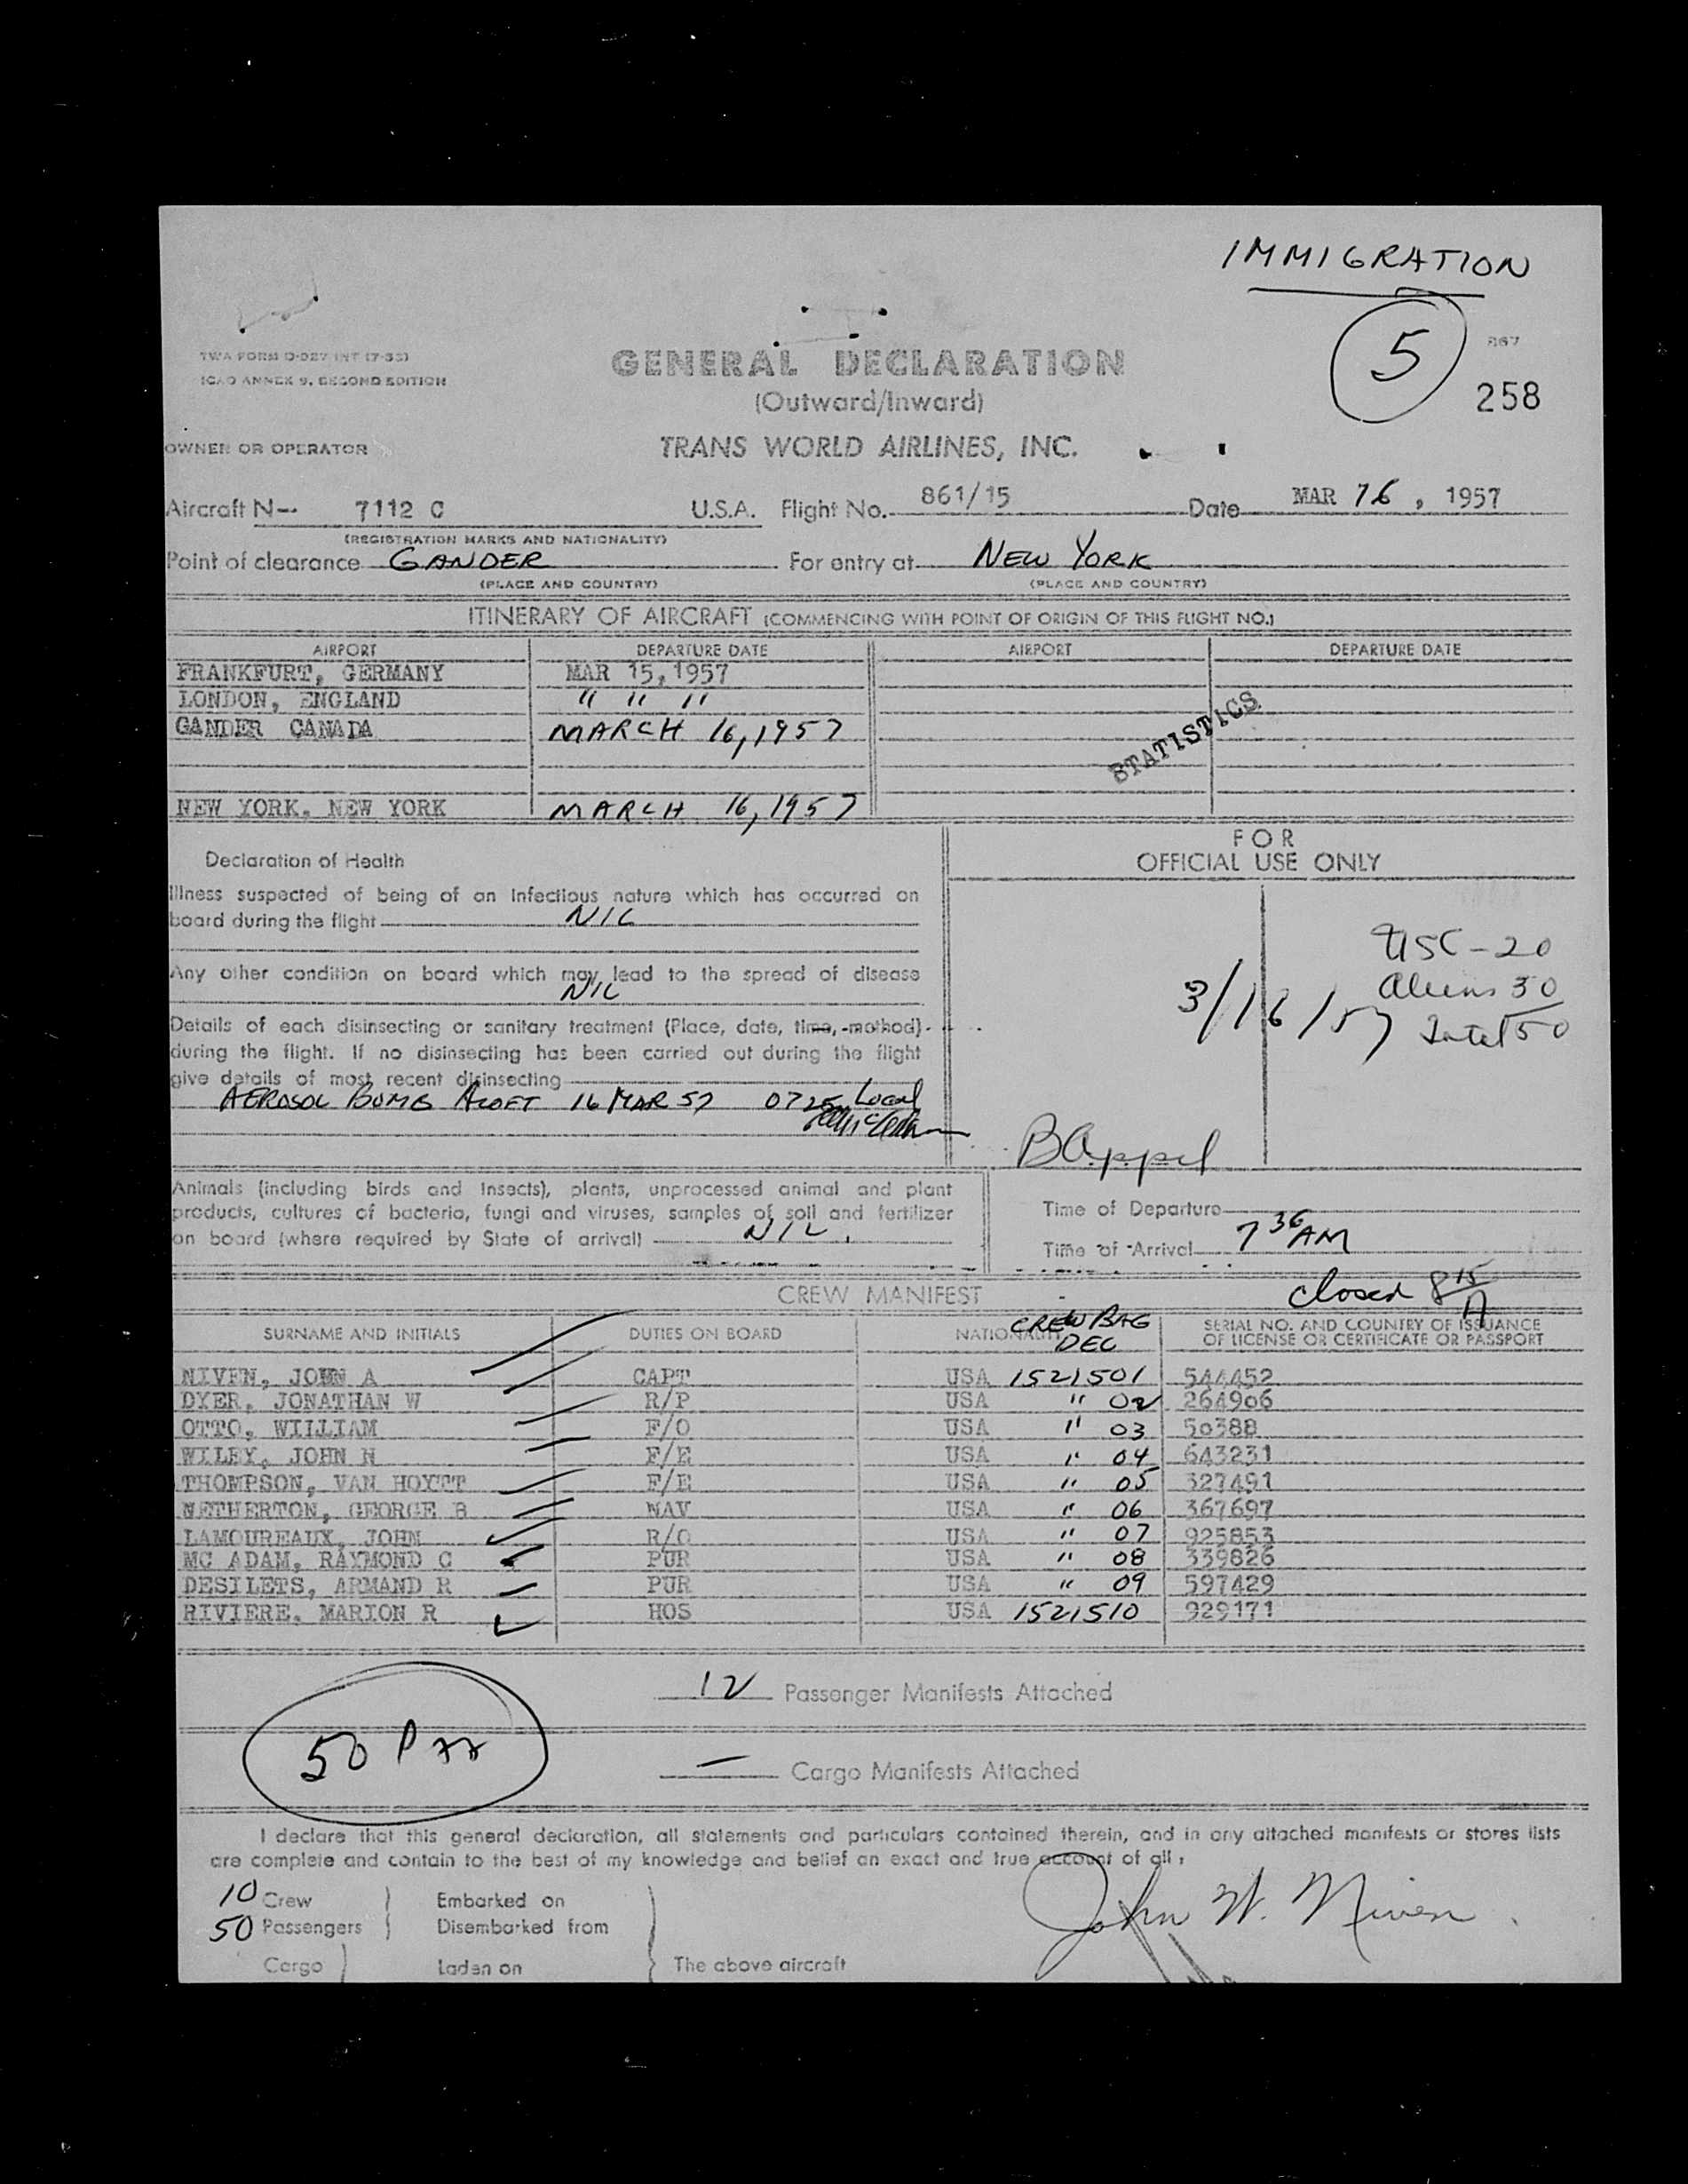 IMMIGRATION
5
867
258
TWA FORM D-027 INT (7-53)
ICAO ANNEX 9, SECOND EDITION
GENERAL DECLARATION
(Outward/Inward)
OWNER OR OPERATOR
TRANS WORLD AIRLINES, INC.
Aircraft N-- 7112 C U.S.A. Flight No. 861/15 Date MAR 16, 1957
(REGISTRATION MARKS AND NATIONALITY)
Point of clearance GANDER For entry at NEW YORK
(PLACE AND COUNTRY) (PLACE AND COUNTRY)
ITINERARY OF AIRCRAFT (COMMENCING WITH POINT OF ORIGIN OF THIS FLIGHT NO.)
AIRPORT DEPARTURE DATE AIRPORT DEPARTURE DATE
FRANKFURT, GERMANY MAR 15, 1957
LONDON, ENGLAND " " "
GANDER CANADA MARCH 16, 1957
STATISTICS
NEW YORK, NEW YORK MARCH 16, 1957
FOR
OFFICIAL USE ONLY
Declaration of Health
Illness suspected of being of an infectious nature which has occurred on
board during the flight NIL
Any other condition on board which may lead to the spread of disease
NIL
Details of each disinsecting or sanitary treatment (Place, date, time, method)
during the flight. If no disinsecting has been carried out during the flight
give details of most recent disinsecting
AEROSOL BOMB ALOFT 16 MAR 57 0725 Local
USC-20
Aliens 30
Total 50
3/16/57
B Appel
Animals (including birds and insects), plants, unprocessed animal and plant
products, cultures of bacteria, fungi and viruses, samples of soil and fertilizer
on board (where required by State of arrival) NIL.
Time of Departure
Time of Arrival 7 36 AM
closed 8 15 A
CREW MANIFEST
SURNAME AND INITIALS DUTIES ON BOARD NATIONALITY CREW BAG DEC SERIAL NO. AND COUNTRY OF ISSUANCE
OF LICENSE OR CERTIFICATE OR PASSPORT
NIVEN, JOHN A CAPT USA 1521501 544452
DYER, JONATHAN W R/P USA " 02 264906
OTTO, WILLIAM F/O USA " 03 50388
WILEY, JOHN N F/E USA " 04 643231
THOMPSON, VAN HOYTT F/E USA " 05 327491
NETHERTON, GEORGE B NAV USA " 06 367697
LAMOUREAUX, JOHN R/O USA " 07 925853
MC ADAM, RAYMOND C PUR USA " 08 339826
DESILETS, ARMAND R PUR USA " 09 597429
RIVIERE, MARION R HOS USA 1521510 929171
12 Passenger Manifests Attached
50 Pax
— Cargo Manifests Attached
I declare that this general declaration, all statements and particulars contained therein, and in any attached manifests or stores lists
are complete and contain to the best of my knowledge and belief an exact and true account of all:
10 Crew } Embarked on
50 Passengers } Disembarked from
Cargo } Laden on } The above aircraft
John W. Niven